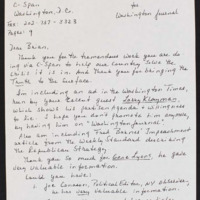 C-Span
for
Washington, D.C.
Washington Journal
Fax: 202-737-
Pages: 9
Dear Brian,
Thank you for the tremendous work you are do
ing via C-Span to help our Country solve the
Crisis it is in. And thank you for bringing the
Truth to the surface.
I'm including an ad in the Washington Times,
run by your recent guest Larry Klayman,
which shows his partisan Agenda & willingness
to lie. I hope you don't promote him anymore,
by having him on "Washington Journal".
Also am including Fred Barnes' Impeachment
article from the Weekly Standard describing
the Republican Strategy.
Thank you so much for Gene Lyons. He gave
very valuable information.
Could you have:
1. Joe Conason, Political Editor, NY Observer,
he has very valuable information.